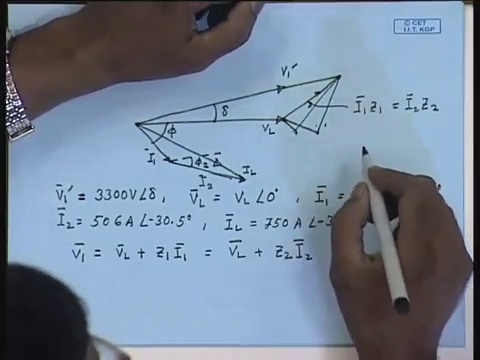 © CET
I.I.T. KGP
V̄₁′
δ
V_L
Ī₁Z₁ = Ī₂Z₂
φ
Ī₁
φ₂
Ī₂
I_L
V̄₁′ = 3300V∠δ , V̄_L = V_L∠0° , Ī₁ =
Ī₂ = 506A∠-30.5° , Ī_L = 750A∠-3
V̄₁ = V̄_L + Z₁Ī₁ = V̄_L + Z₂Ī₂